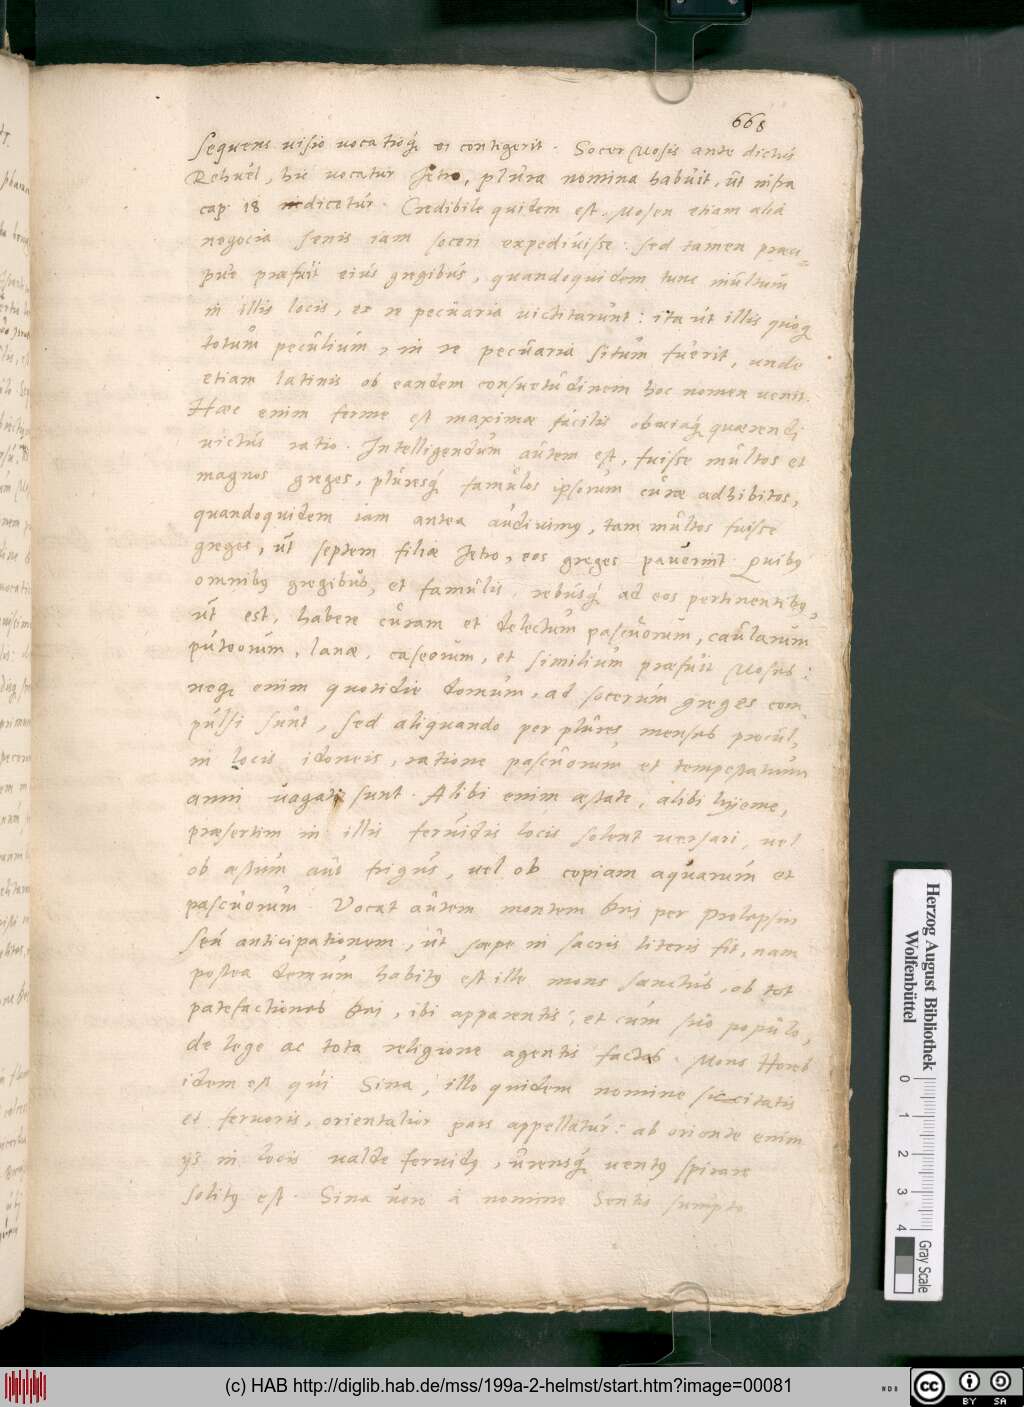 668
sequens visio vocatioq́; ei contigerit. Socer Mosis ante dictus
Rehuel, hic vocatur Jetro, plura nomina habuit, ut infra
cap. 18 dicetur. Credibile quidem est, Mosen etiam alia
negocia senis iam soceri expedivisse: sed tamen praeci=
pue praefuit eius gregibus, quandoquidem tunc multum
in illis locis, ex re pecuaria victitarunt: ita ut illis quoq;
totum peculium, in re pecuaria situm fuerit, unde
etiam latinis ob eandem consuetudinem hoc nomen venit.
Haec enim ferme est maximae facilis obviaq́; quaerendi
victus ratio. Intelligendum autem est, fuisse multos et
magnos greges, pluresq́; famulos ipsorum curae adhibitos,
quandoquidem iam antea audivimus, tam multos fuisse
greges, ut septem filiae Jetro, eos greges paverint. Quibus
omnibus gregibus, et famulis, rebusq́; ad eos pertinentibus,
ut est, habere curam et delectum pascuorum, caularum
puteorum, lanae, caseorum, et similium praefuit Moses:
neq; enim quotidie domum, ad socerum greges com
pulsi sunt, sed aliquando per plures menses procul,
in locis idoneis, ratione pascuorum et tempestatum
anni vagati sunt. Alibi enim aestate, alibi hyeme,
praesertim in illis fervidis locis solent versari, vel
ob aestum aut frigus, vel ob copiam aquarum et
pascuorum. Vocat autem montem Dei per prolepsin
seu anticipationem, ut saepe in sacris literis fit, nam
postea demum habitus est ille mons sanctus, ob tot
patefactiones Dei, ibi apparentis, et cum suo populo,
de lege ac tota religione agentis factas. Mons Horeb
idem est qui Sina, illo quidem nomine siccitatis
et fervoris, orientalior pars appellatur: ab oriente enim
ijs in locis valde fervidus, urensq́; ventus spirare
solitus est. Sina vero à nomine Sentis sumpto
(c) HAB http://diglib.hab.de/mss/199a-2-helmst/start.htm?image=00081
Herzog August Bibliothek
Wolfenbüttel
0 1 2 3 4
Gray Scale
cc BY SA